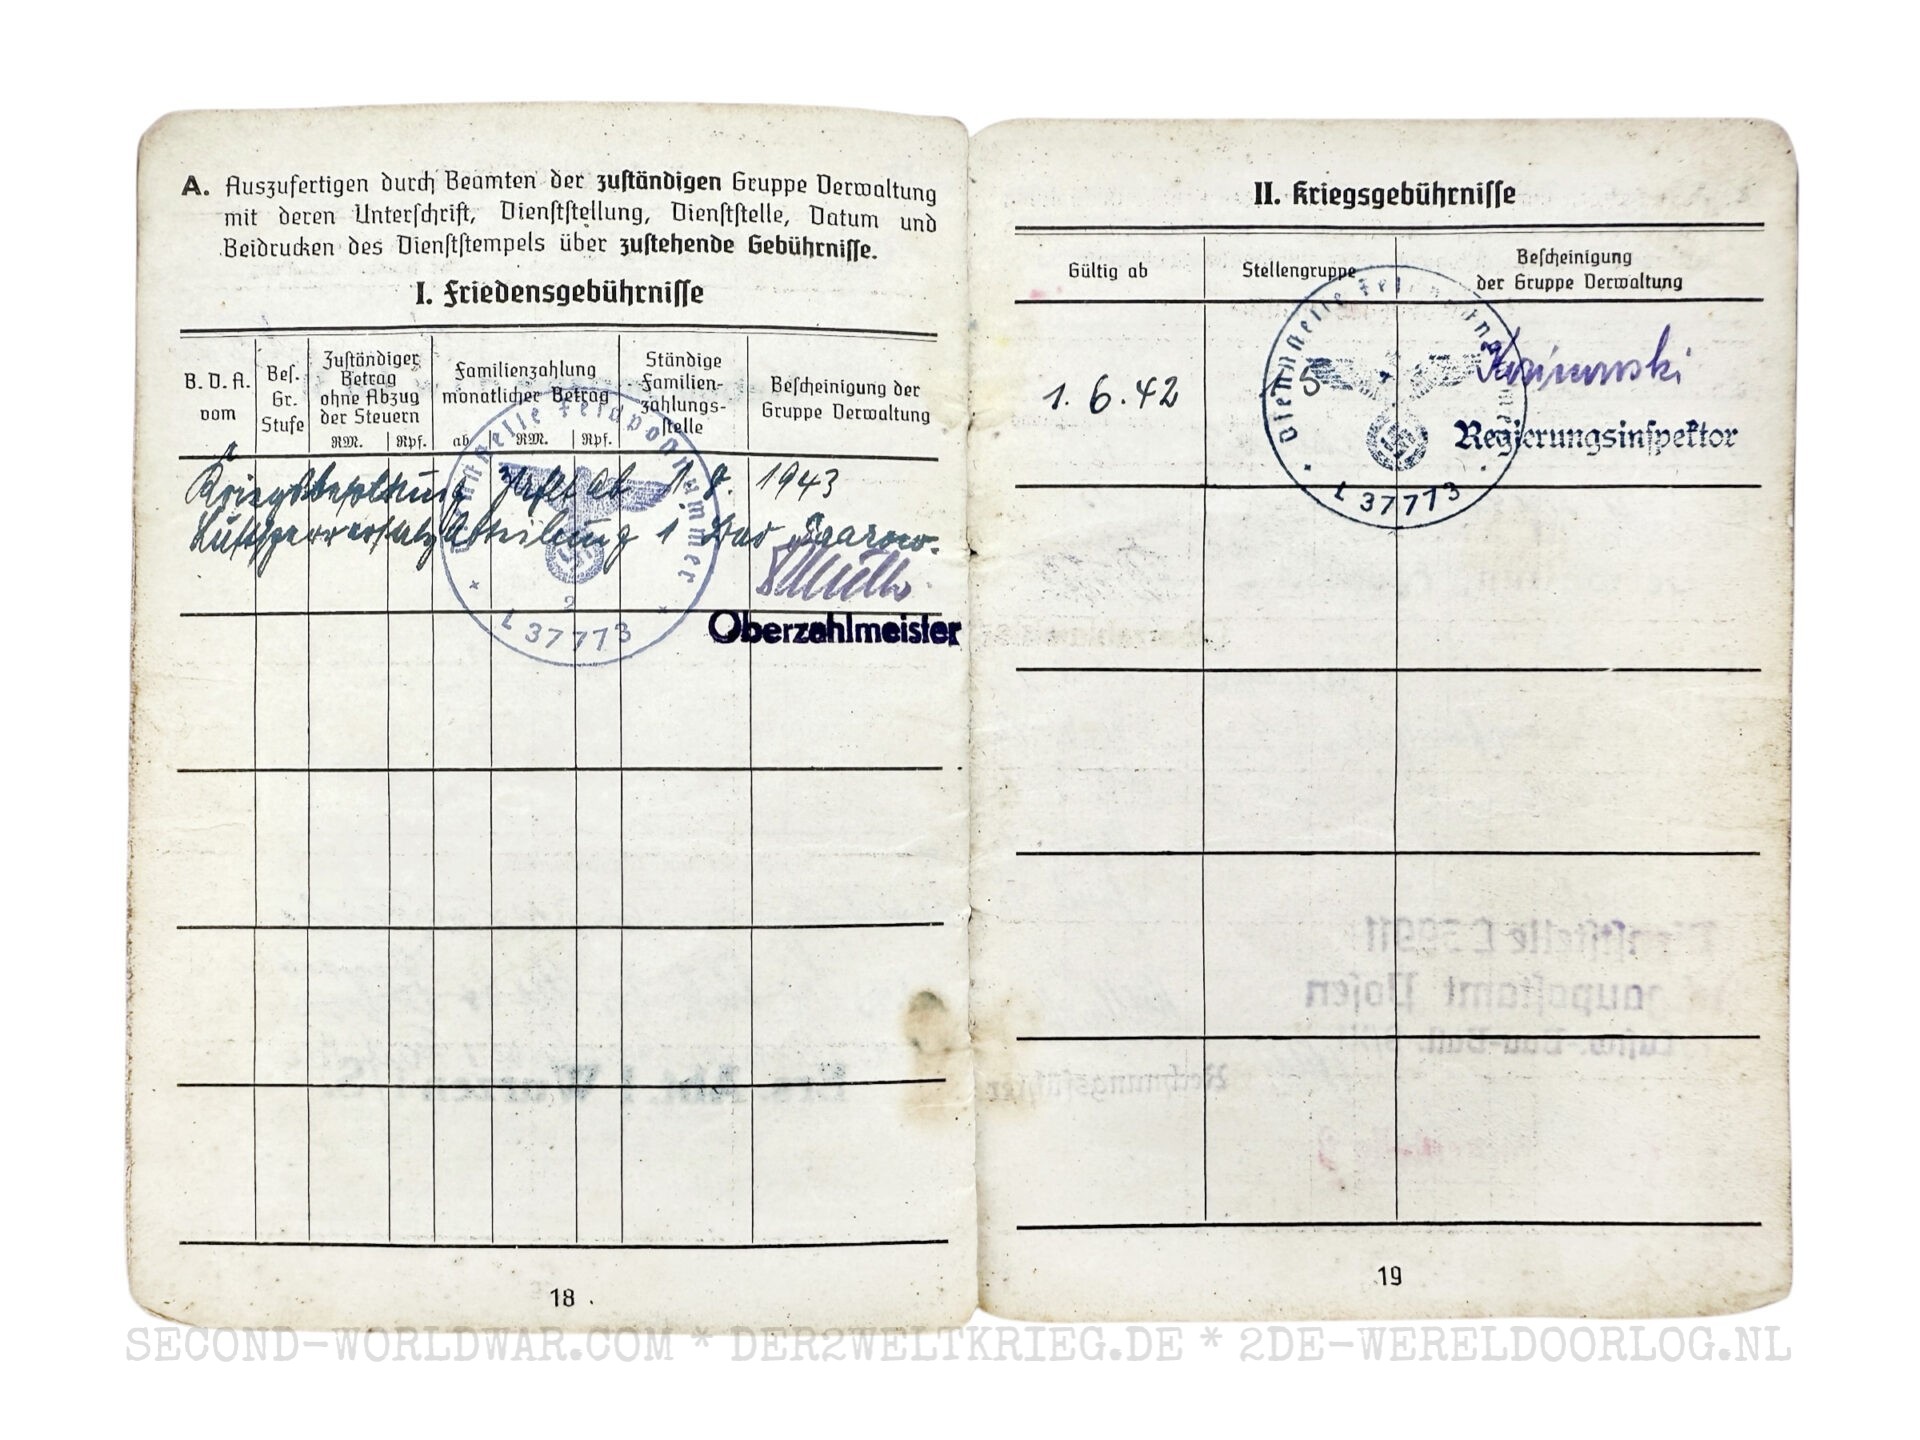 A. Auszufertigen durch Beamten der zuständigen Gruppe Verwaltung
mit deren Unterschrift, Dienststellung, Dienststelle, Datum und
Beidrucken des Dienststempels über zustehende Gebührnisse.
I. Friedensgebührnisse
B. D. A.
vom
Bes.
Gr.
Stufe
Zuständiger
Betrag
ohne Abzug
der Steuern
RM. Rpf.
Familienzahlung
monatlicher Betrag
ab RM. Rpf.
Ständige
Familien-
zahlungs-
stelle
Bescheinigung der
Gruppe Verwaltung
Kriegsbesoldung zahlt ab 1. 8. 1943
Luftsperrersatzabteilung 1 Bad Saarow.
Dienststelle Feldpostnummer
2
L 37773
Oberzahlmeister
18
II. Kriegsgebührnisse
Gültig ab
Stellengruppe
Bescheinigung
der Gruppe Verwaltung
1. 6. 42
15
Regierungsinspektor
Dienststelle Feldpostnummer
L 37773
Dienststelle L 59911
Postamt Posen
Rechnungsführer
19
SECOND-WORLDWAR.COM * DER2WELTKRIEG.DE * 2DE-WERELDOORLOG.NL